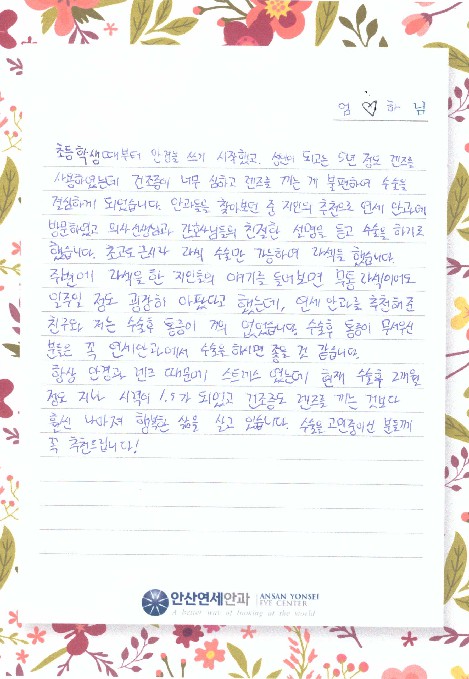 엄 ♡ 하 님
초등학생때부터 안경을 쓰기 시작했고, 성인이 되고는 5년 정도 렌즈를
사용하였는데 건조증이 너무 심하고 렌즈를 끼는 게 불편하여 수술을
결심하게 되었습니다. 안과들을 찾아보던 중 지인의 추천으로 연세 안과에
방문하였고 의사선생님과 간호사님들의 친절한 설명을 듣고 수술을 하기로
했습니다. 초고도 근시라 라섹 수술만 가능하여 라섹을 했습니다.
주변에 라섹을 한 지인들의 얘기를 들어보면 보통 라섹이어도
일주일 정도 굉장히 아팠다고 했는데, 연세 안과를 추천해준
친구와 저는 수술후 통증이 거의 없었습니다. 수술후 통증이 무서우신
분들은 꼭 연세안과에서 수술을 하시면 좋을 것 같습니다.
항상 안경과 렌즈 때문에 스트레스 였는데 현재 수술후 2개월
정도 지나 시력이 1.5가 되었고 건조증도 렌즈를 끼는 것보다
훨씬 나아져 행복한 삶을 살고 있습니다. 수술을 고민중이신 분들께
꼭 추천드립니다!
안산연세안과 ANSAN YONSEI
EYE CENTER
A better way of looking at the world